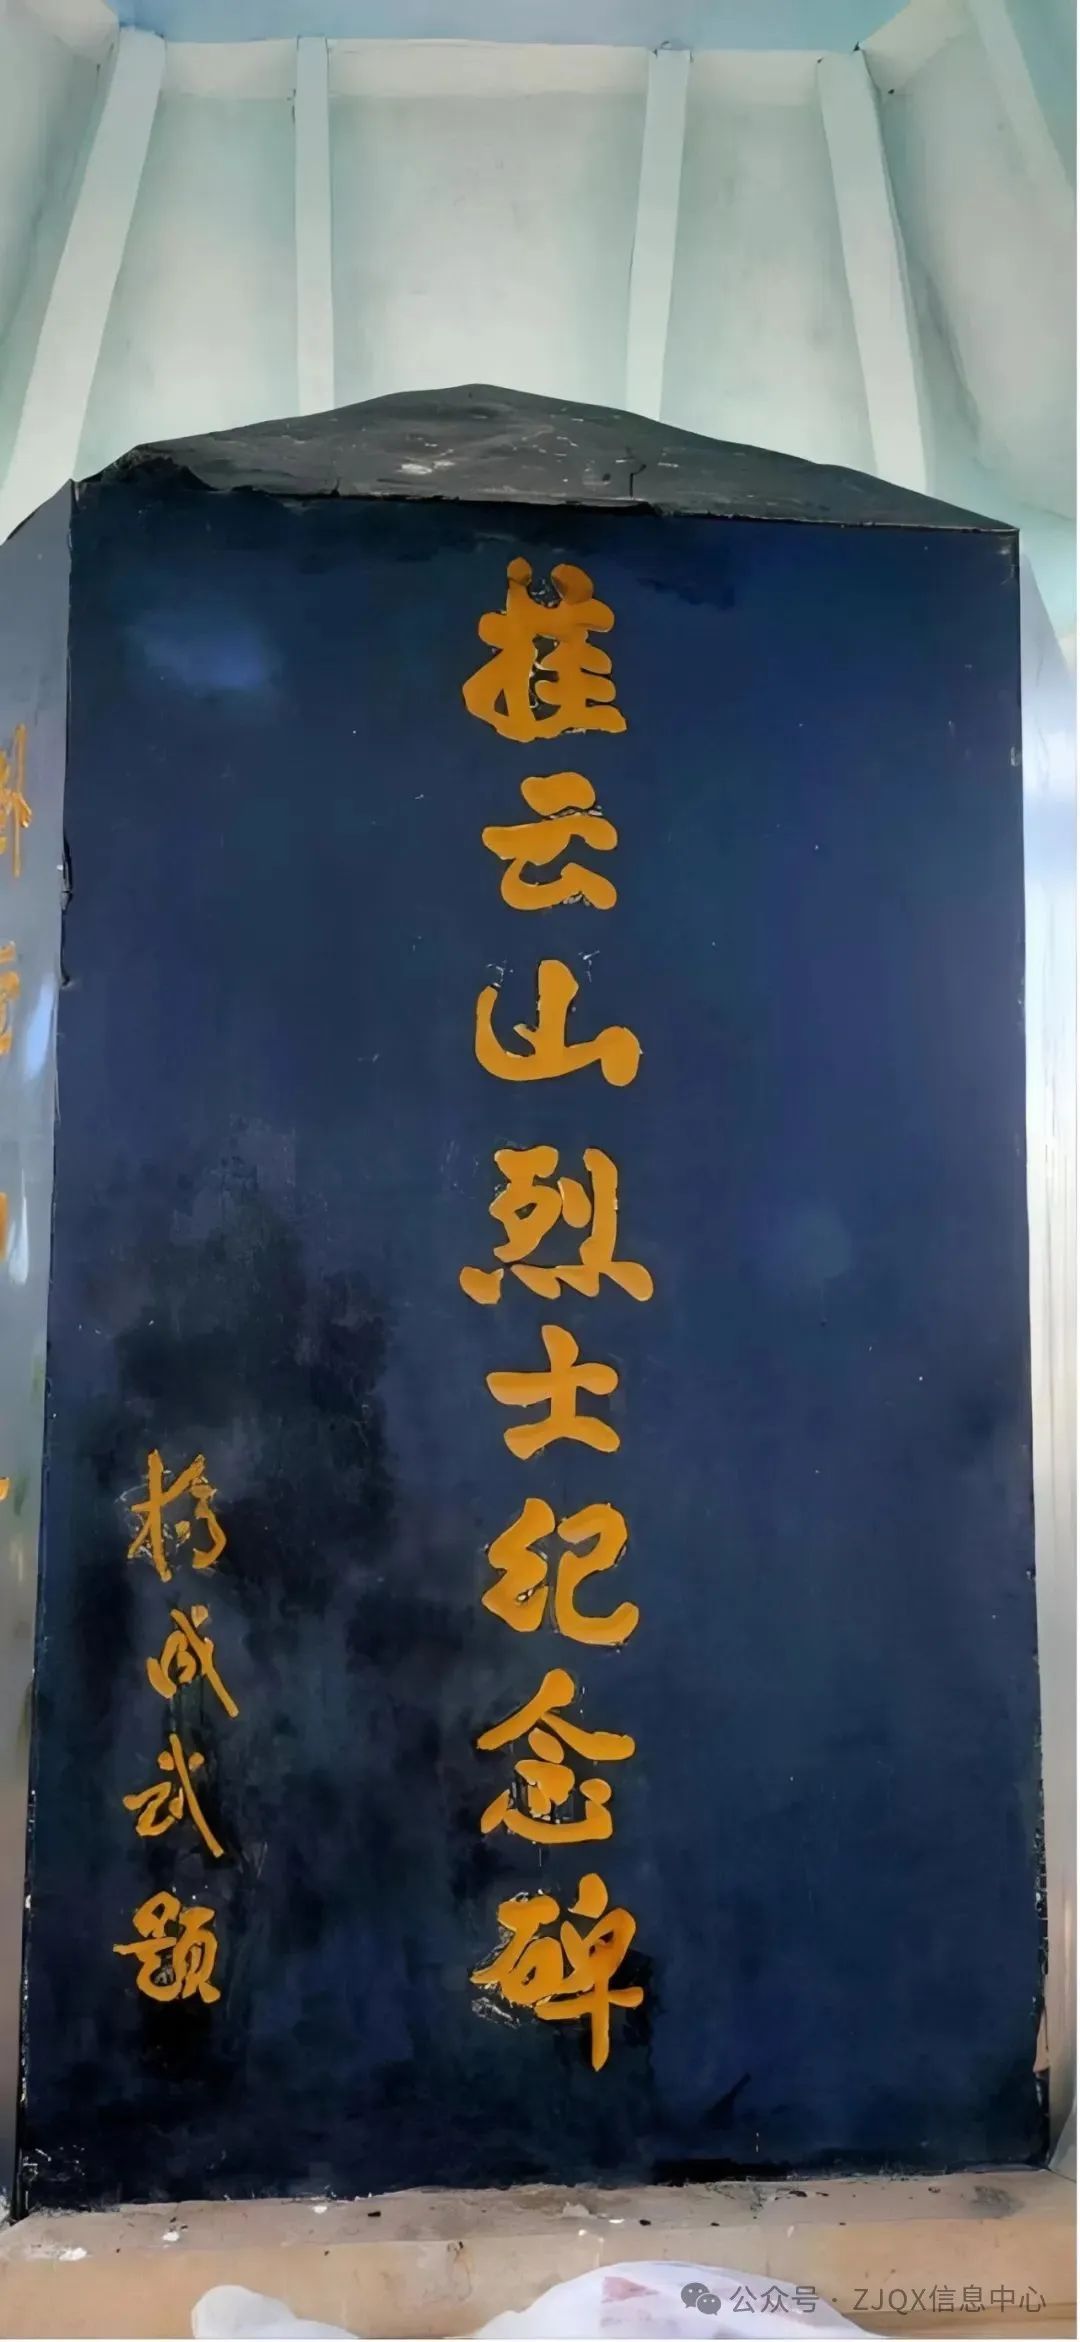 挂云山烈士纪念碑
杨成武题
公众号 · ZJQX信息中心